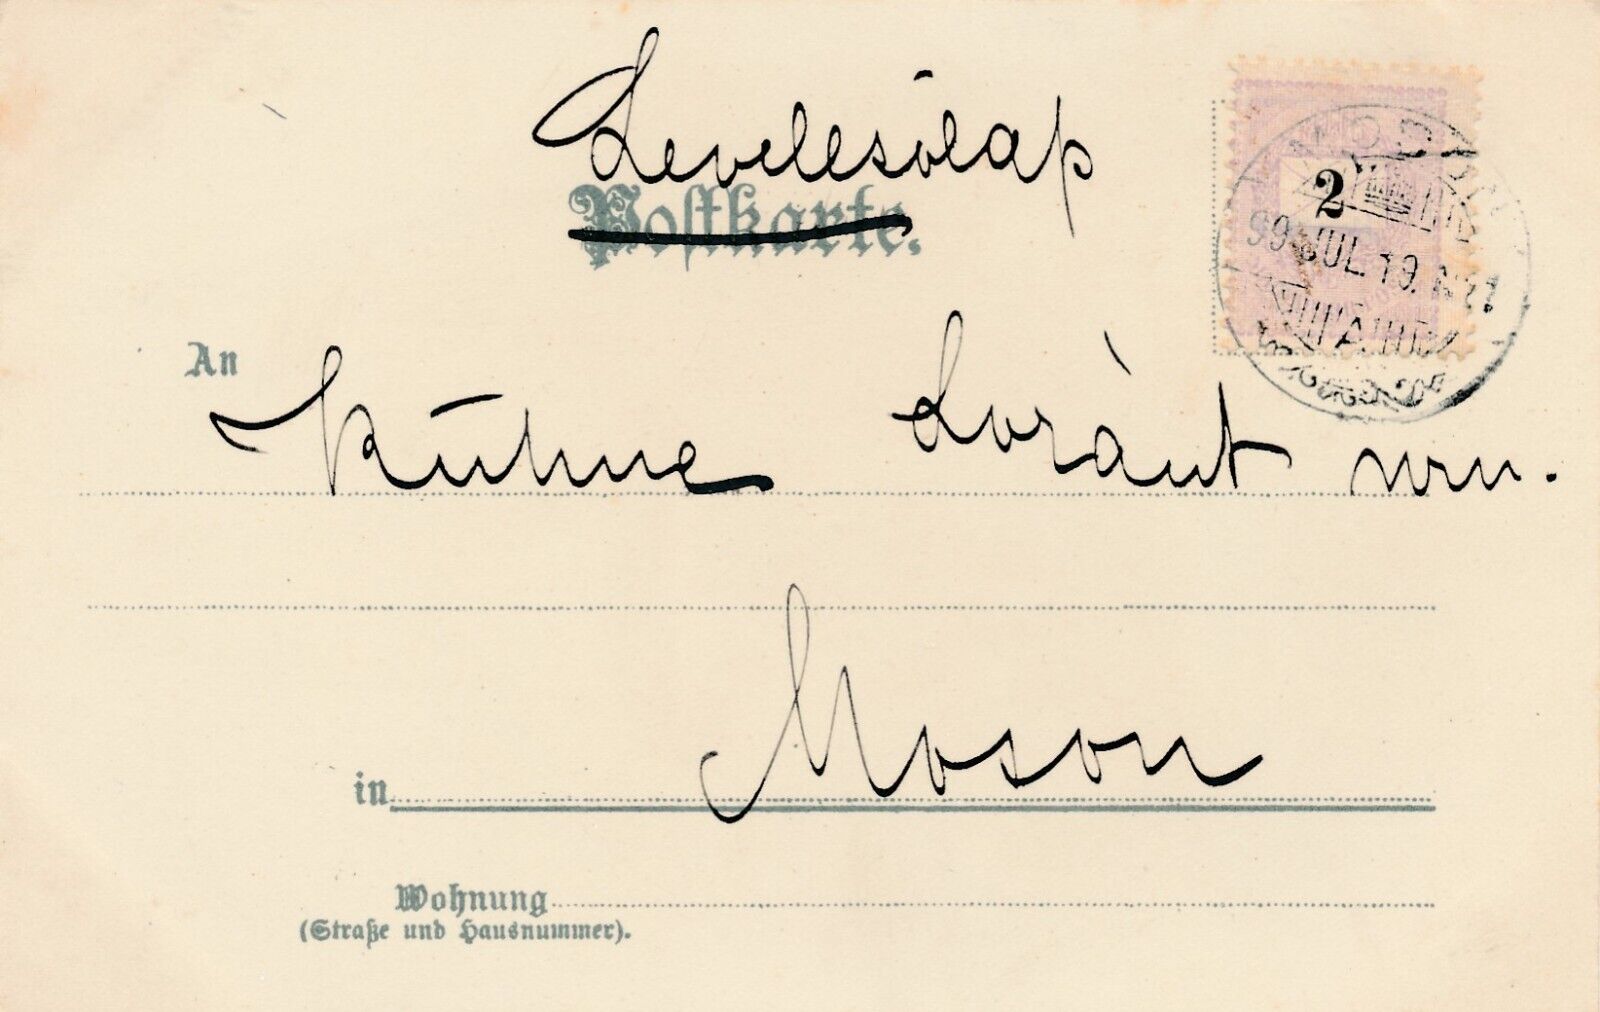 Levelezőlap
Postkarte.
2
99 JUL. 19.
An
Kühne Loránt
in Moson
Wohnung
(Straße und Hausnummer).